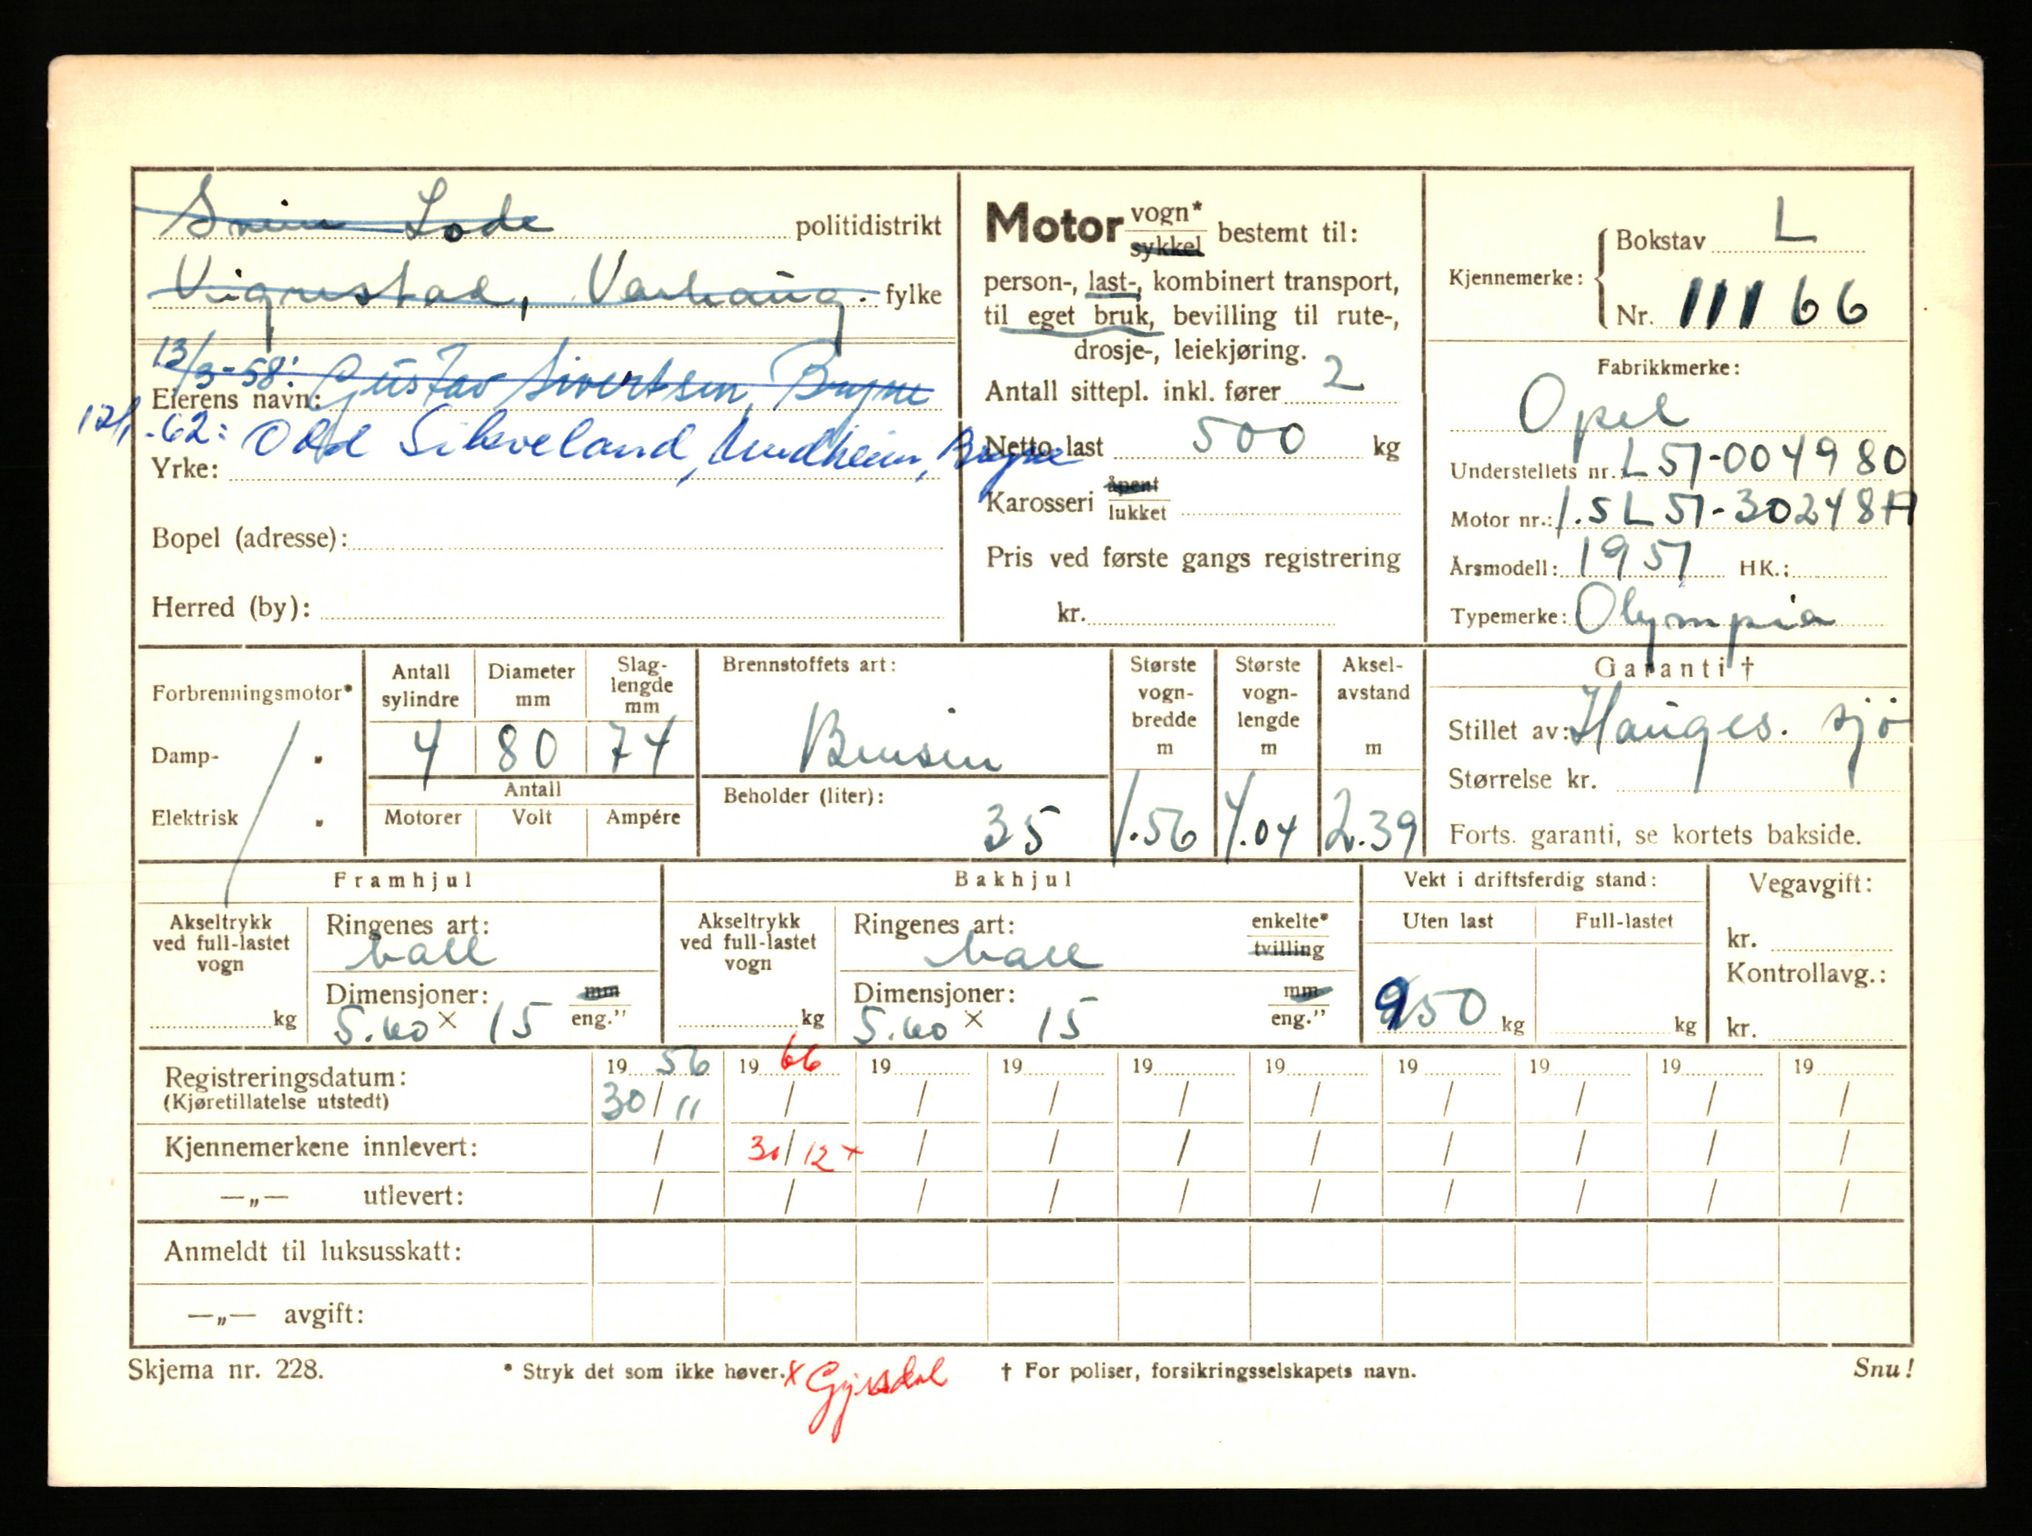 Lode politidistrikt
Vigrestad, Varhaug. fylke
13/3-58: Gustav Sivertsen, Bryne
Eierens navn:
12/1-62: Odd Sikveland, Bryne
Yrke:
Bopel (adresse):
Herred (by):
Motor vogn* sykkel bestemt til:
person-, last-, kombinert transport,
til eget bruk, bevilling til rute-,
drosje-, leiekjøring.
Antall sittepl. inkl. fører 2
Netto last 500 kg
Karosseri åpent lukket
Pris ved første gangs registrering
kr.
Kjennemerke: Bokstav L
Nr. 11166
Fabrikkmerke:
Opel
Understellets nr.: L51-004980
Motor nr.: 1.5L51-30248A
Årsmodell: 1951 HK.:
Typemerke: Olympia
Forbrenningsmotor*
Damp- "
Elektrisk "
Antall sylindre Diameter mm Slag-lengde mm
4 80 74
Antall
Motorer Volt Ampére
Brennstoffets art:
Bensin
Beholder (liter):
35
Største vogn-bredde m
1.56
Største vogn-lengde m
4.04
Aksel-avstand m
2.39
Garanti †
Stillet av: Hauges. sjø
Størrelse kr.
Forts. garanti, se kortets bakside.
Framhjul
Akseltrykk ved full-lastet vogn
kg
Ringenes art:
ball
Dimensjoner: mm
5.60 x 15 eng."
Bakhjul
Akseltrykk ved full-lastet vogn
kg
Ringenes art: enkelte*
ball tvilling
Dimensjoner: mm
5.60 x 15 eng."
Vekt i driftsferdig stand:
Uten last Full-lastet
950 kg kg
Vegavgift:
kr.
Kontrollavg.:
kr.
19 56 19 66 19 19 19 19 19 19 19 19
Registreringsdatum:
(Kjøretillatelse utstedt) 30/11 / / / / / / / / /
Kjennemerkene innlevert: / 30/12 x / / / / / / / /
—„— utlevert: / / / / / / / / / /
Anmeldt til luksusskatt:
—„— avgift:
Skjema nr. 228. * Stryk det som ikke høver. x Gjesdal † For poliser, forsikringsselskapets navn. Snu!